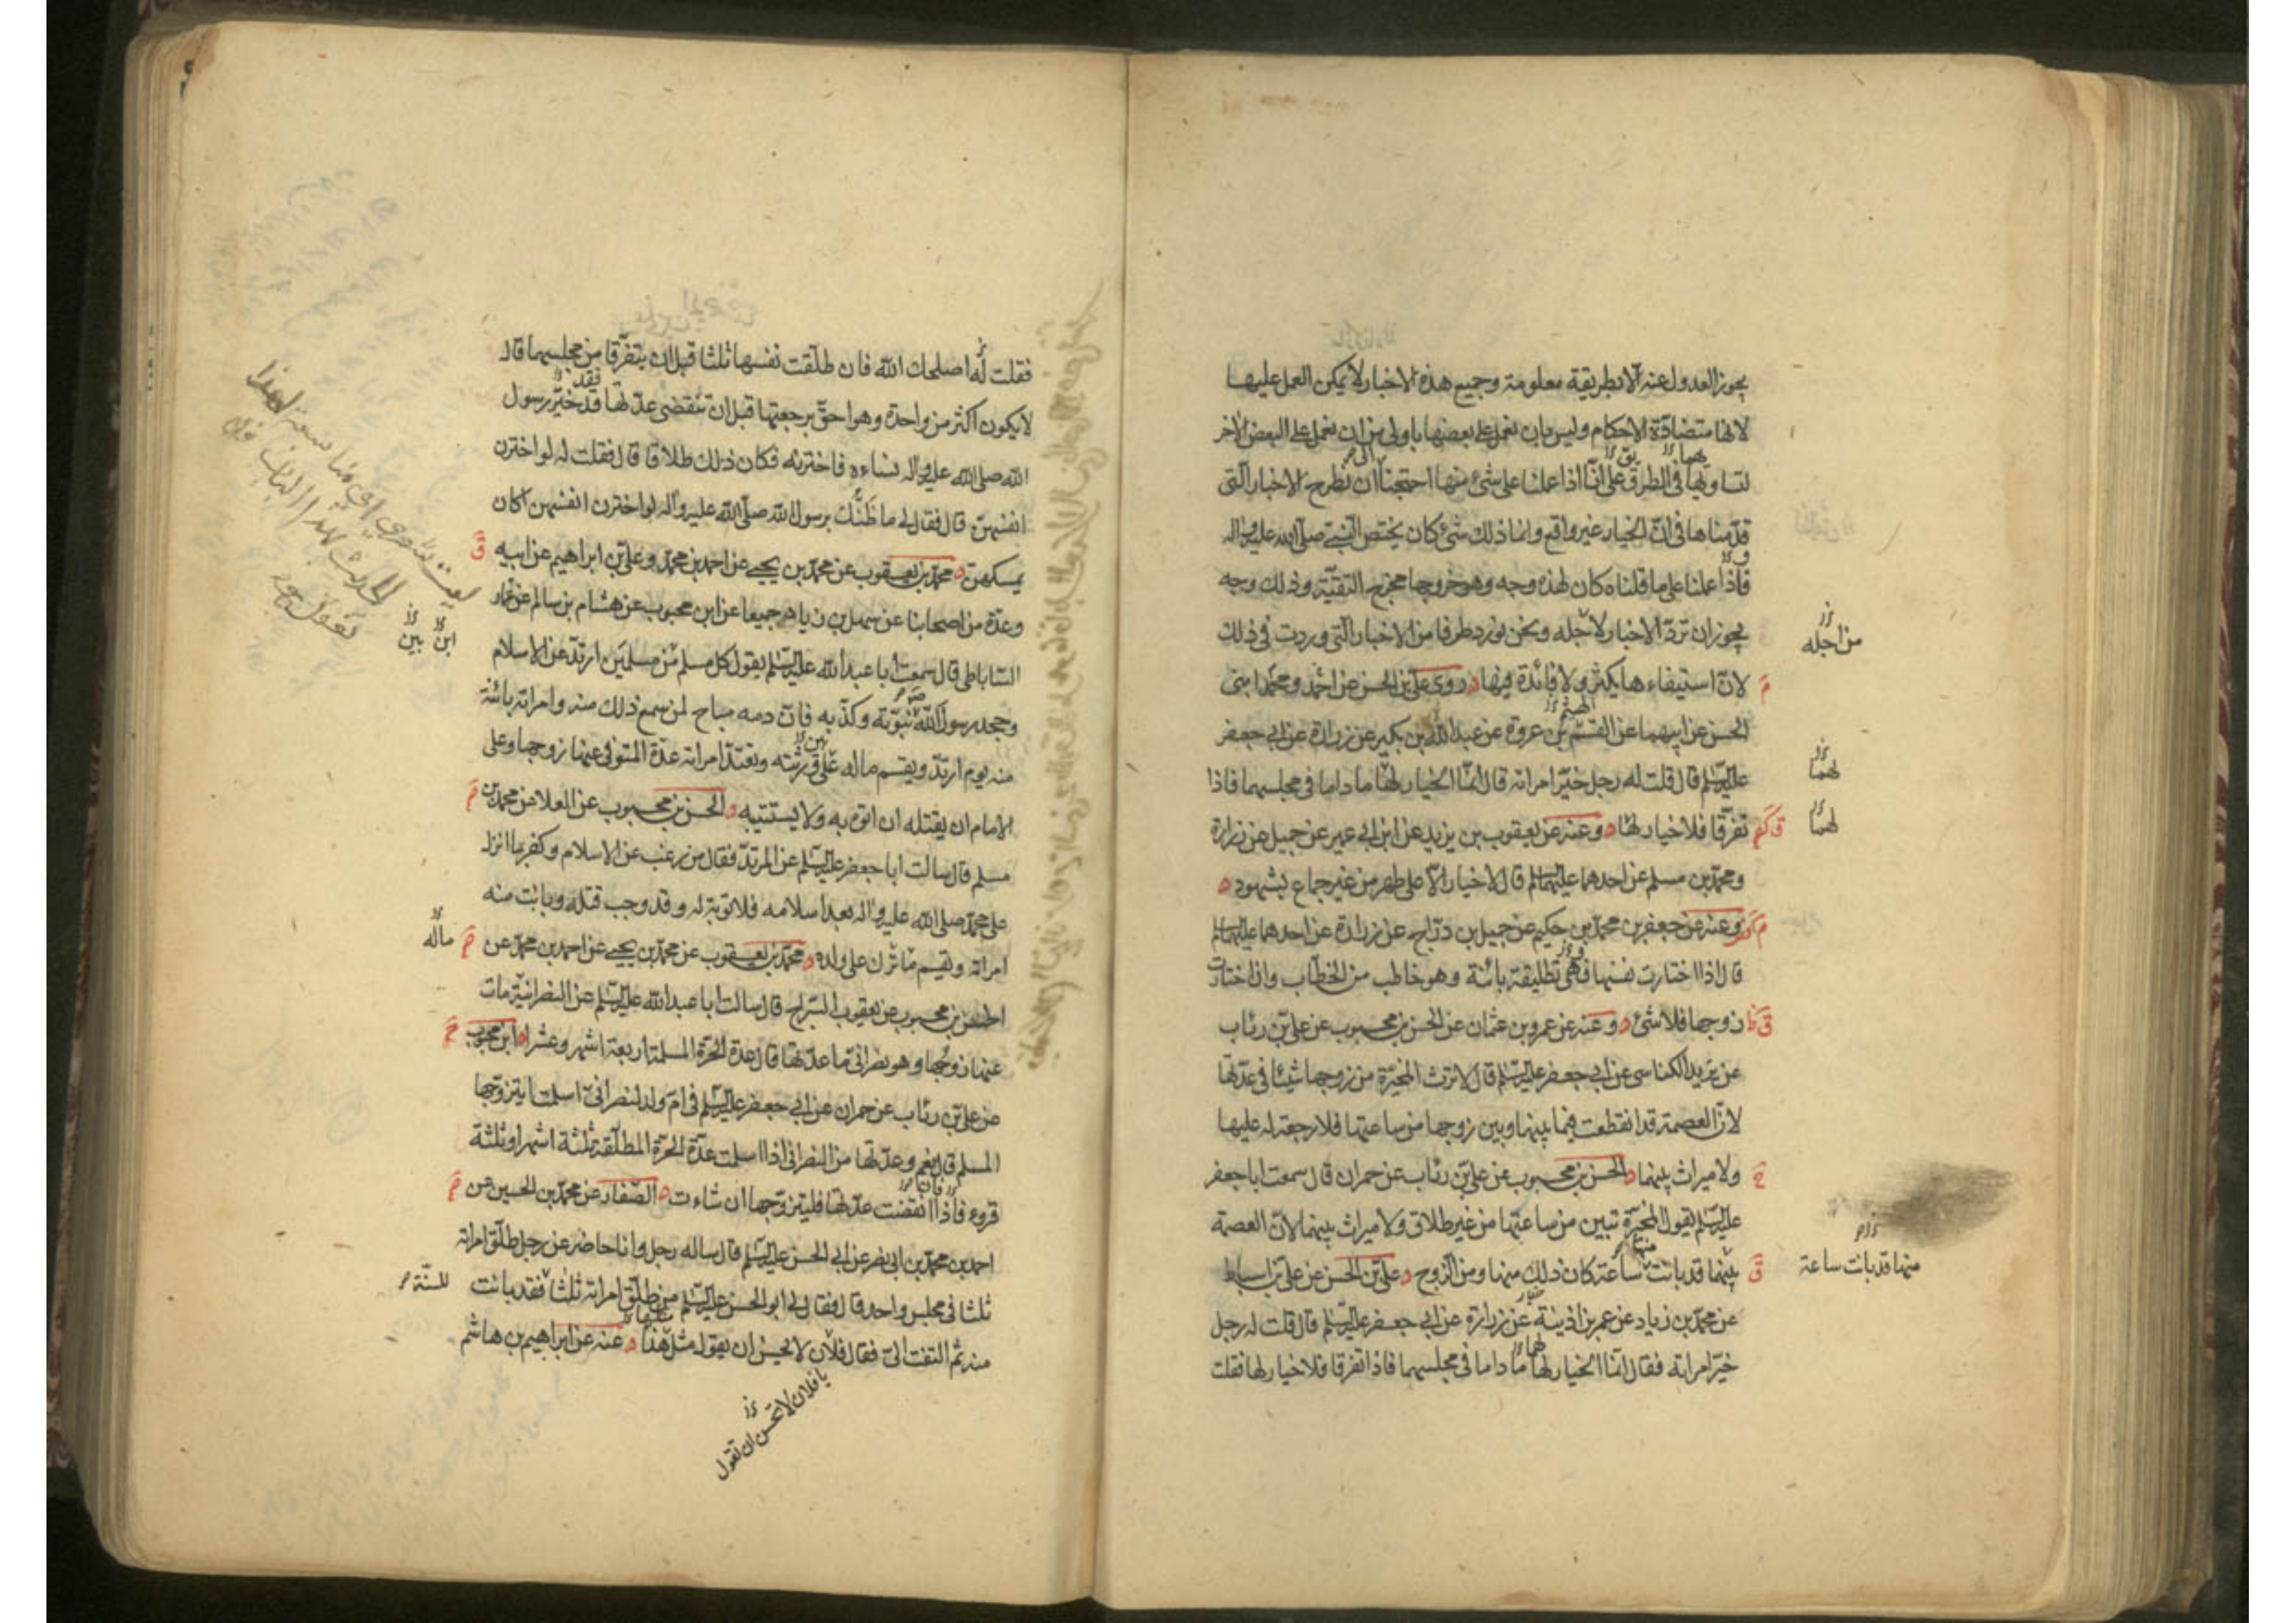 يجوز العدول عنه الا بطريقة معلومة وجميع هذه الاخبار لا يمكن العمل عليها
لانها متضادّة الاحكام وليس بان نعمل على بعضها باولى من ان نعمل على البعض الاخر
لتساويها فى الطرق على انّا اذا عملنا على شئ منها احتجنا ان نطرح الاخبار الّتى
قدّمناها فى انّ الخيار غير واقع وانما ذلك شئ كان يختص النّبى صلى الله عليه واله
فاذا عملنا على ما قلناه كان لهذه وجه وهو خروجها مخرج التقيّة وذلك وجه
يجوز ان تردّ الاخبار لاجله ونحن نورد طرفا من الاخبار الّتى وردت فى ذلك
من اجله
لانّ استيفاءها يكثر ولا فائدة فيها روى علىّ بن الحسن عن احمد ومحمّد ابنى
الحسن عن ابيهما عن القسم بن عروة عن عبد الله بن بكير عن زرارة عن ابى جعفر
عليه السّلم قال قلت له رجل خيّر امراته قال انمّا الخيار لهما ما داما فى مجلسهما فاذا
لهما
تفرّقا فلا خيار لهما وعنه عن يعقوب بن يزيد عن ابن ابى عمير عن جميل عن زرارة
لهما
ومحمّد بن مسلم عن احدهما عليهما السلم قال لا خيار الّا على طهر من غير جماع بشهود
وعنه عن جعفر بن محمّد بن حكيم عن جميل بن درّاج عن زرارة عن احدهما عليهما السلم
قال اذا اختارت نفسها فهى تطليقة بائنة وهو خاطب من الخطّاب وان اختارت
زوجها فلا شئ وعنه عن عمرو بن عثمان عن الحسن بن محبوب عن علىّ بن رئاب
عن يزيد الكناسى عن ابى جعفر عليه السّلم قال لا ترث المخيّرة من زوجها شيئا فى عدّتها
لانّ العصمة قد انقطعت فيما بينها وبين زوجها من ساعتها فلا رجعة له عليها
ولا ميراث بينهما الحسن بن محبوب عن علىّ بن رئاب عن حمران قال سمعت ابا جعفر
عليه السّلم يقول المخيّرة تبين من ساعتها من غير طلاق ولا ميراث بينهما لانّ العصمة
بينهما قد بانت ساعة كان ذلك منها ومن الزوج علىّ بن الحسن عن علىّ بن اسباط
منها قد بانت ساعة
عن محمّد بن زياد عن عمر بن اذينة عن زرارة عن ابى جعفر عليه السّلم قال قلت له رجل
خيّر امراته فقال انّما الخيار لها ما داما فى مجلسهما فاذا تفرقا فلا خيار لها فقلت
فقلت له اصلحك الله فان طلّقت نفسها ثلثا قبل ان يتفرّقا من مجلسهما قال
لا يكون اكثر من واحدة وهو احقّ برجعتها قبل ان تنقضى عدّتها قد خيّر رسول
الله صلى الله عليه واله نساءه فاخترنه فكان ذلك طلاقا قال فقلت له لو اخترن
انفسهنّ قال فقال لى ما ظنّك برسول الله صلّى الله عليه وآله لو اخترن انفسهن اكان
يمسكهنّ محمّد بن يعقوب عن محمّد بن يحيى عن احمد بن محمّد وعلىّ بن ابراهيم عن ابيه
وعدّة من اصحابنا عن سهل بن زياد جميعا عن ابن محبوب عن هشام بن سالم عن عمّار
السّاباطى قال سمعت ابا عبد الله عليه السّلم يقول كل مسلم من مسلمين ارتدّ عن الاسلام
ابن بين
وجحد رسول الله نبوّته وكذّبه فانّ دمه مباح لمن سمع ذلك منه وامراته بائنة
منه يوم ارتدّ ويقسم ماله على ورثته وتعتدّ امراته عدّة المتوفى عنها زوجها وعلى
الامام ان يقتله ان اتوه به ولا يستتيبه الحسن بن محبوب عن العلا عن محمّد بن
مسلم قال سالت ابا جعفر عليه السّلم عن المرتدّ فقال من رغب عن الاسلام وكفر بما انزل
على محمّد صلى الله عليه واله بعد اسلامه فلا توبة له وقد وجب قتله وبانت منه
امراته ويقسم ما ترك على ولده محمّد بن يعقوب عن محمّد بن يحيى عن احمد بن محمّد عن
ماله
الحسن بن محبوب عن يعقوب السّراج قال سالت ابا عبد الله عليه السّلم عن النصرانيّة مات
عنها زوجها وهو نصرانىّ ما عدّتها قال عدّة الحرّة المسلمة اربعة اشهر وعشرا ابن محبوب
عن علىّ بن رئاب عن حمران عن ابى جعفر عليه السّلم فى امّ ولد لنصرانىّ اسلمت ايتزوّجها
المسلم قال نعم وعدّتها من النصرانى اذا اسلمت عدّة الحرّة المطلّقة ثلثة اشهر او ثلثة
قروء فاذا انقضت عدّتها فليتزوّجها ان شاءت الصّفار عن محمّد بن الحسين عن
احمد بن محمّد بن ابى نصر عن ابى الحسن عليه السّلم قال ساله رجل وانا حاضر عن رجل طلّق امراته
ثلثا فى مجلس واحد قال فقال لى ابو الحسن عليه السّلم من طلّق امراته ثلثا فقد بانت
للسنّة
منه ثم التفت الىّ فقال فلان لا يحسن ان يقول مثل هذا عنه عن ابراهيم بن هاشم
يا فلان لا تحسن ان تقول